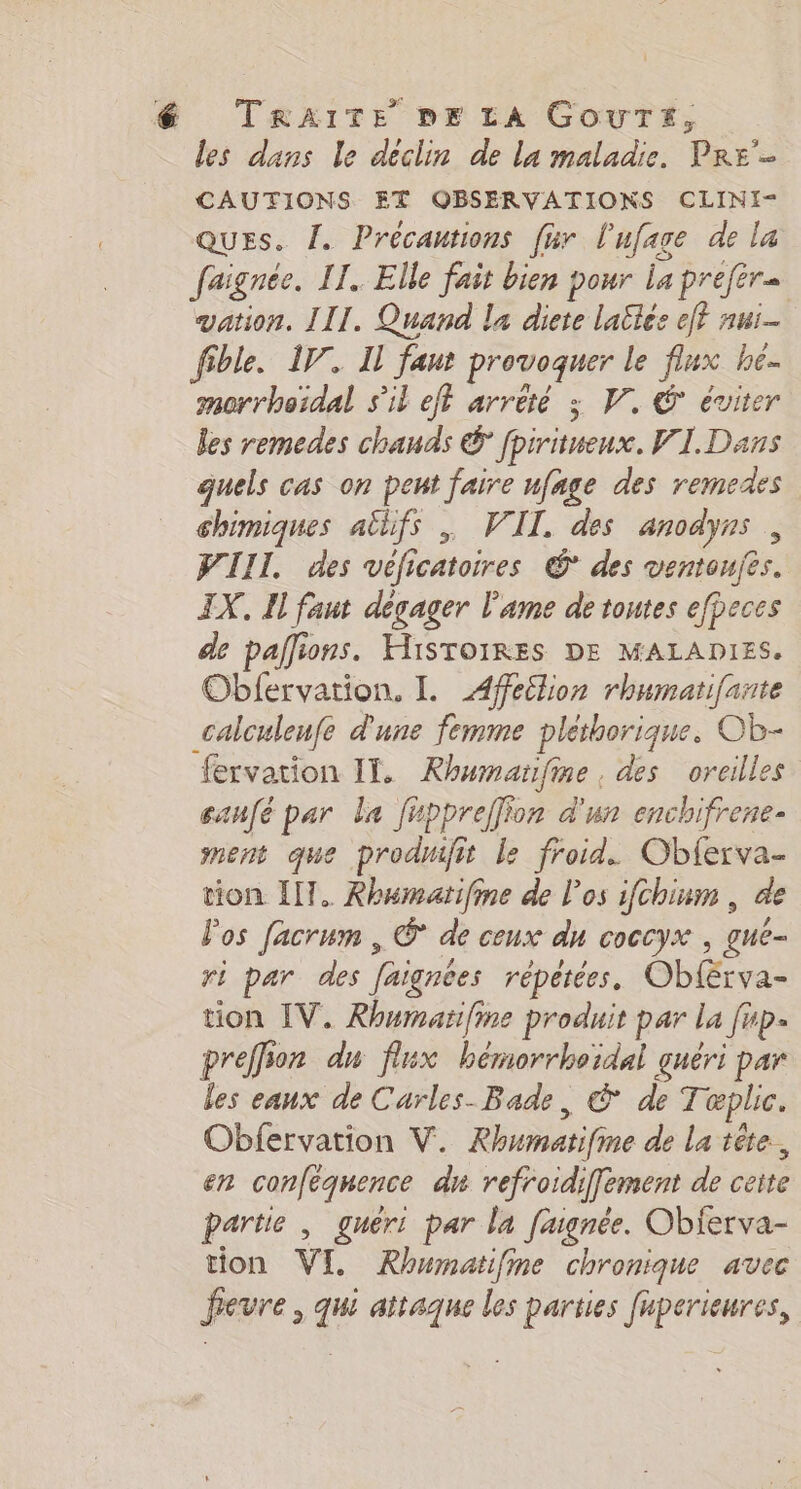 6 TRAITE' DE LA GOUTE,
les dans le déclin de la maladie. PRE'-
CAUTIONS ET OBSERVATIONS CLINI-
QUES. I. Précautions ſur l'uſage de la
ſaignée. II. Elle fait bien pour la préſer-
vation. III. Quand la diete lactée eſt nui-
ſible. IV. Il faut provoquer le flux hé-
morrhoïdal s'il eſt arrêté ; V. & éviter
les remedes chauds & ſpiritueux. VI. Dans
quels cas on peut faire uſage des remedes
chimiques actifs , VII. des anodyns ,
VIII. des véſicatoires & des ventouſes.
IX. Il faut dégager l'ame de toutes eſpeces
de paſſions. HISTOIRES DE MALADIES.
Obſervation. I. Affection rhumatiſante
calculeuſe d'une femme pléthorique. Ob-
ſervation II. Rhumatiſme des oreilles
cauſé par la ſuppreſſion d'un enchifrene-
ment que produiſit le froid. Obſerva-
tion III. Rhumatiſme de l'os iſchium , de
l'os ſacrum , & de ceux du coccyx , gué-
ri par des ſaignées répétées. Obſerva-
tion IV. Rhumatiſme produit par la ſup-
preſſion du flux hémorrhoïdal guéri par
les eaux de Carles-Bade , & de Tœplic.
Obſervation V. Rhumatiſme de la tête ,
en conſéquence du refroidiſſement de cette
partie , guéri par la ſaignée. Obſerva-
tion VI. Rhumatiſme chronique avec
fievre , qui attaque les parties ſuperieures,